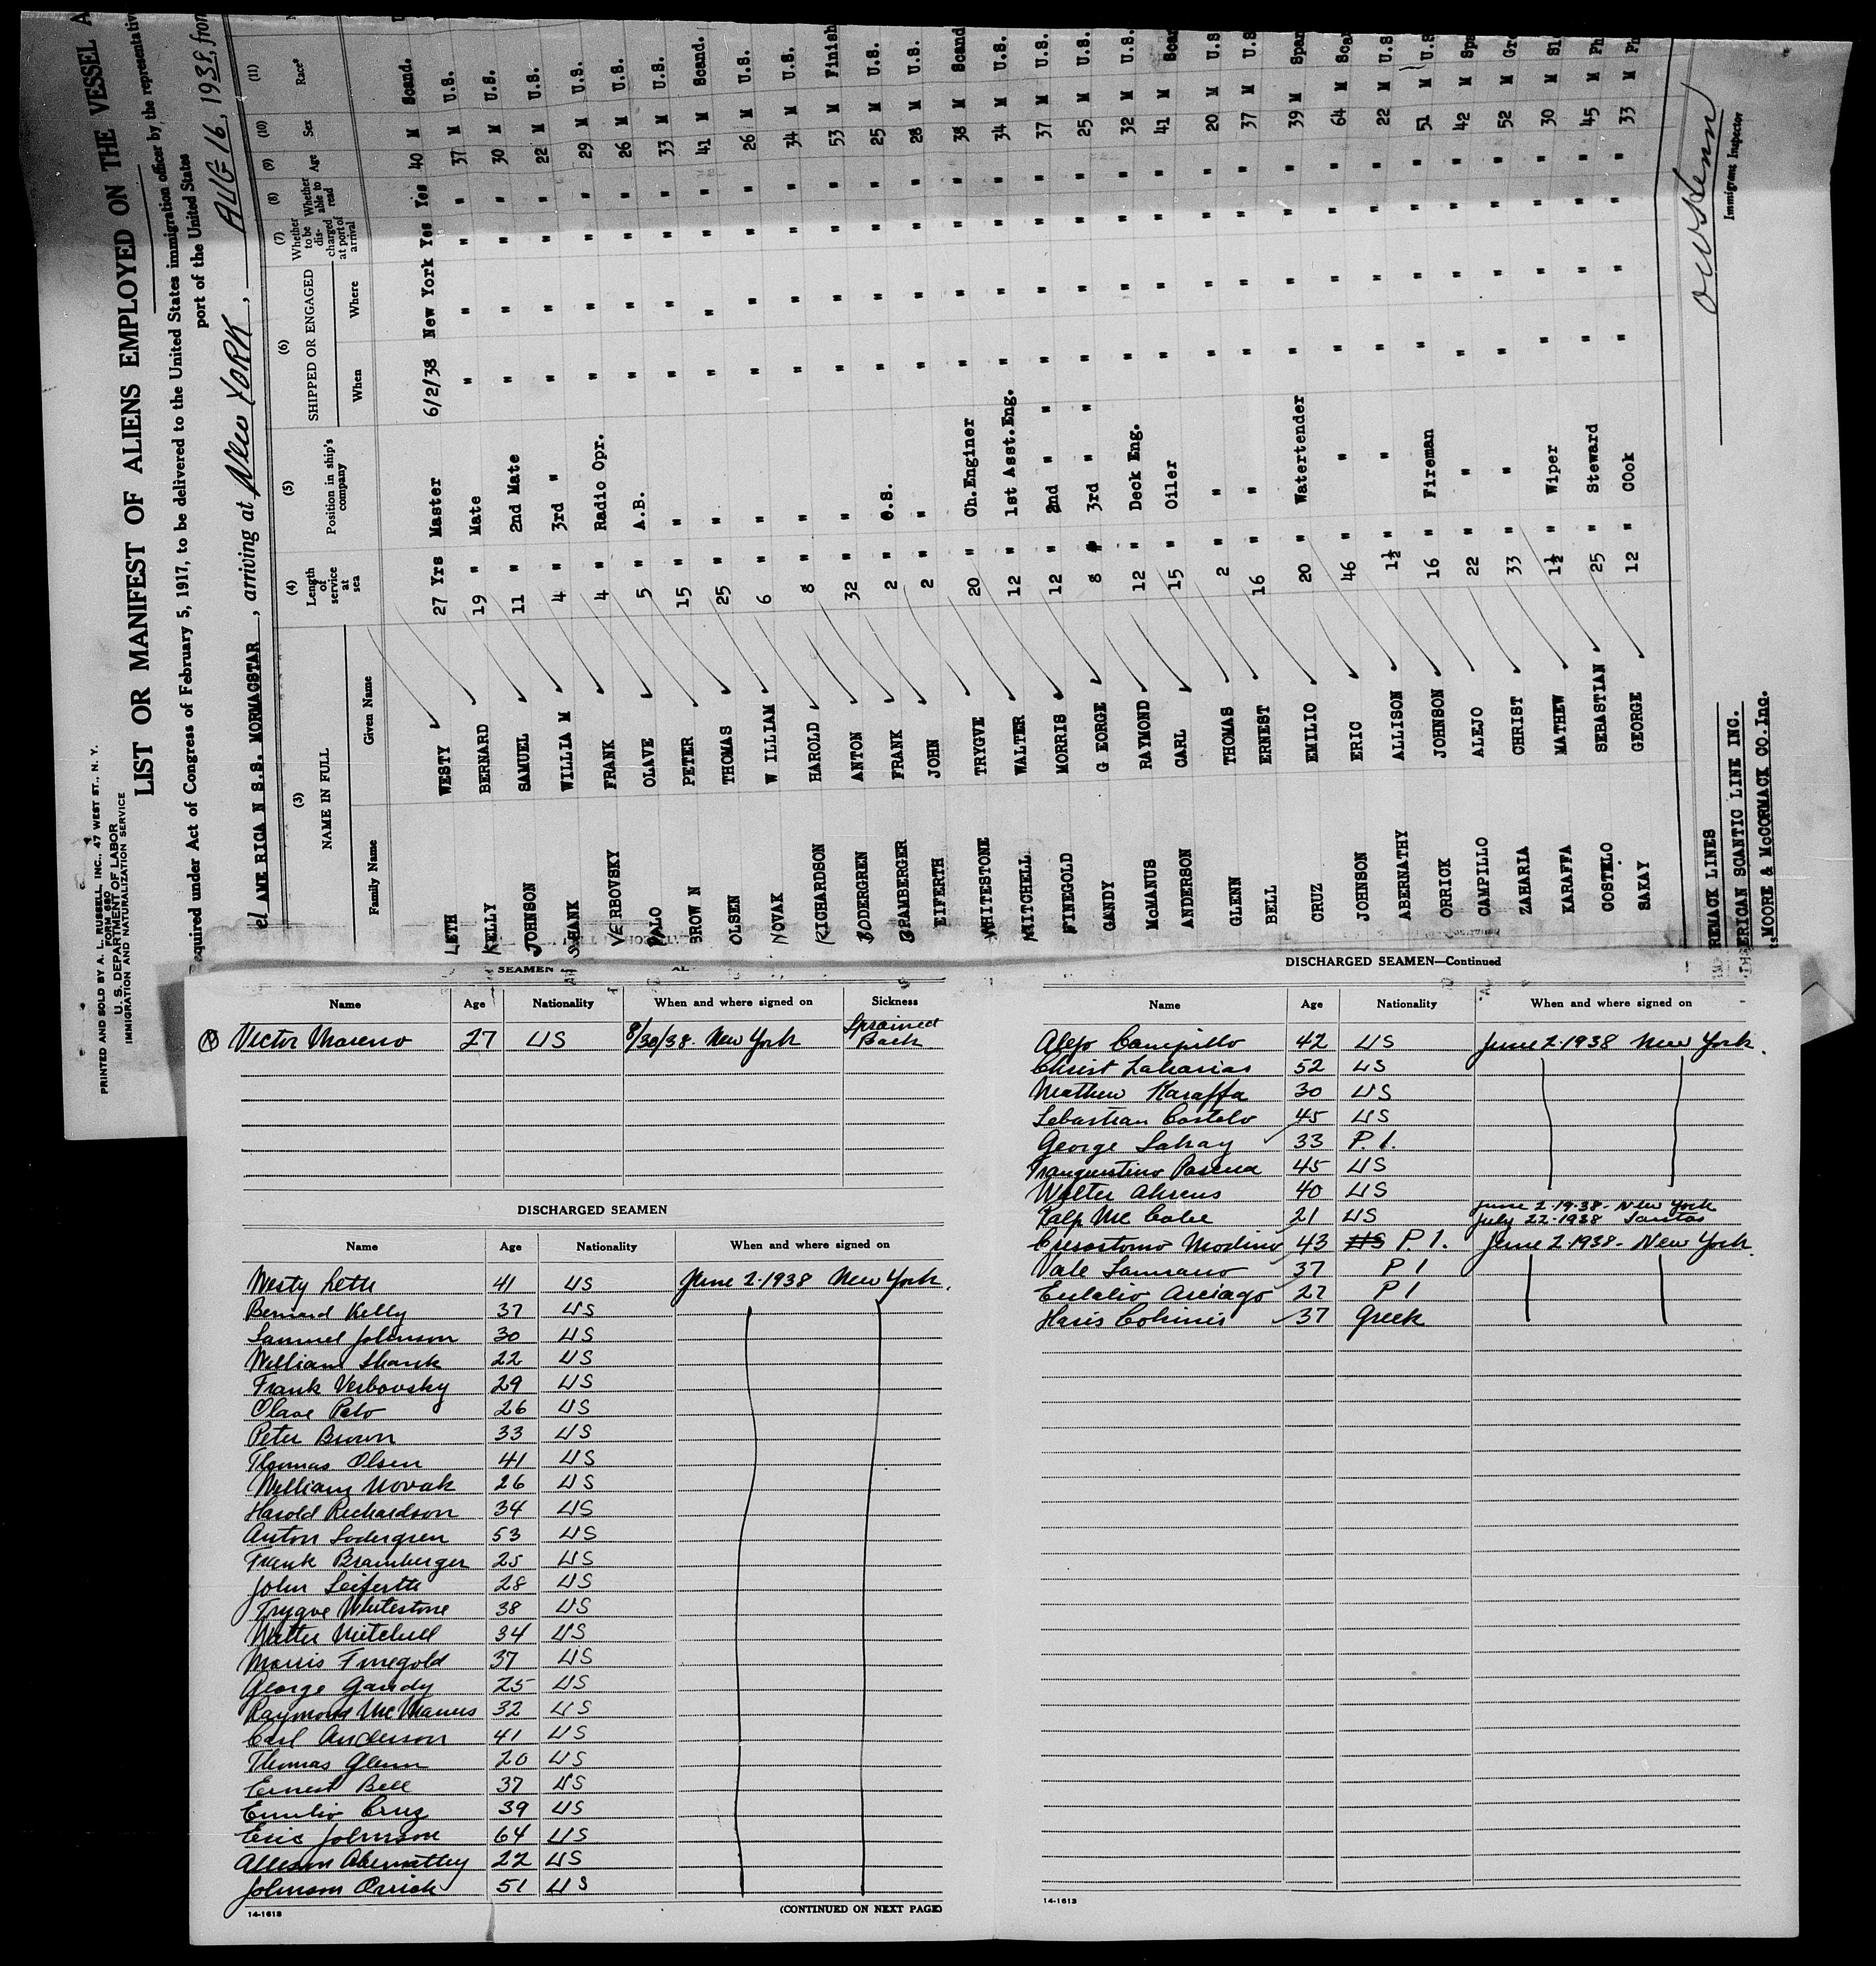 PRINTED AND SOLD BY A. L. RUSSELL, INC., 47 WEST ST., N. Y.
FORM 680
U. S. DEPARTMENT OF LABOR
IMMIGRATION AND NATURALIZATION SERVICE
LIST OR MANIFEST OF ALIENS EMPLOYED ON THE VESSEL A
equired under Act of Congress of February 5, 1917, to be delivered to the United States immigration officer by the representativ
port of the United States
el AME RICA N S.S. MORMACSTAR, arriving at New YORK, AUG 16, 1938, from
(3) (4) (5) (6) (7) (8) (9) (10) (11)
NAME IN FULL Length of service at sea Position in ship's company SHIPPED OR ENGAGED Whether to be discharged at port of arrival Whether able to read Age Sex Race*
Family Name Given Name When Where
LETH WESTY 27 Yrs Master 6/2/38 New York Yes Yes 40 M Scand.
KELLY BERNARD 19 " Mate " " " " 37 M U.S.
JOHNSON SAMUEL 11 " 2nd Mate " " " " 30 M U.S.
SHANK WILLIA M 4 " 3rd " " " " " 22 M U.S.
VERBOVSKY FRANK 4 " Radio Opr. " " " " 29 M U.S.
PALO OLAVE 5 " A.B. " " " " 26 M U.S.
BROW N PETER 15 " " " " " " 33 M U.S.
OLSEN THOMAS 25 " " " " " " 41 M Scand.
NOVAK W ILLIAM 6 " " " " " " 26 M U.S.
RICHARDSON HAROLD 8 " " " " " " 34 M U.S.
BODERGREN ANTON 32 " " " " " " 53 M Finish
BRAMBERGER FRANK 2 " O.S. " " " " 25 M U.S.
EIFERTH JOHN 2 " " " " " " 28 M U.S.
WHITESTONE TRYGVE 20 " Ch.Enginer " " " " 38 M Scand
MITCHELL WALTER 12 " 1st Asst.Eng. " " " " 34 M U.S.
FINEGOLD MORRIS 12 " 2nd " " " " " " 37 M U.S.
GANDY G EORGE 8 " 3rd " " " " " " 25 M U.S.
McMANUS RAYMOND 12 " Deck Eng. " " " " 32 M U.S.
ANDERSON CARL 15 " Oiler " " " " 41 M Scan
GLENN THOMAS 2 " " " " " " 20 M U.S
BELL ERNEST 16 " " " " " " 37 M U.S
CRUZ EMILIO 20 " Watertender " " " " 39 M Span
JOHNSON ERIC 46 " " " " " " 64 M Sca
ABERNATHY ALLISON 1½ " " " " " " 22 M U.S
ORRICK JOHNSON 16 " Fireman " " " " 51 M U.S
CAMPILLO ALEJO 22 " " " " " " 42 M Spa
ZAHARIA CHRIST 33 " " " " " " 52 M Gre
KARAFFA MATHEW 1½ " Wiper " " " " 30 M Sl
COSTELO SEBASTIAN 25 " Steward " " " " 45 M Ph
SAKAY GEORGE 12 " COok " " " " 33 M Ph
REMACK LINES
ERICAN SCANTIC LINE INC.
ts MOORE & McCORMACK CO.Inc.
Immigrant Inspector
SEAMEN
Name Age Nationality When and where signed on Sickness
Victor Moreno 27 US 8/30/38. New York Sprained Back
DISCHARGED SEAMEN
Name Age Nationality When and where signed on
Westy Leth 41 US June 2-1938 New York.
Bernard Kelly 37 US
Samuel Johnson 30 US
William Shank 22 US
Frank Verbovsky 29 US
Olave Palo 26 US
Peter Brown 33 US
Thomas Olsen 41 US
William Novak 26 US
Harold Richardson 34 US
Anton Sodergren 53 US
Frank Bramberger 25 US
John Seiferth 28 US
Trygve Whitestone 38 US
Walter Mitchell 34 US
Morris Finegold 37 US
George Gandy 25 US
Raymond McManus 32 US
Carl Anderson 41 US
Thomas Glenn 20 US
Ernest Bell 37 US
Emilio Cruz 39 US
Eric Johnson 64 US
Allison Abernathy 22 US
Johnson Orrick 51 US
14-1613
(CONTINUED ON NEXT PAGE)
DISCHARGED SEAMEN—Continued
Name Age Nationality When and where signed on
Alejo Campillo 42 US June 2-1938 New York.
Christ Zaharias 52 US
Mathew Karaffa 30 US
Sebastian Costelo 45 US
George Sakay 33 P.I.
Pascua 45 US
Walter Ahrens 40 US
Ralp Mc Cabe 21 US June 2-1938 - New York
July 22-1938 Santos
Crisostomo Modino 43 US P.I. June 2-1938 - New York.
Vale 37 P I
Eulalio Arciago 27 P I
Haris 37 Greek
14-1613